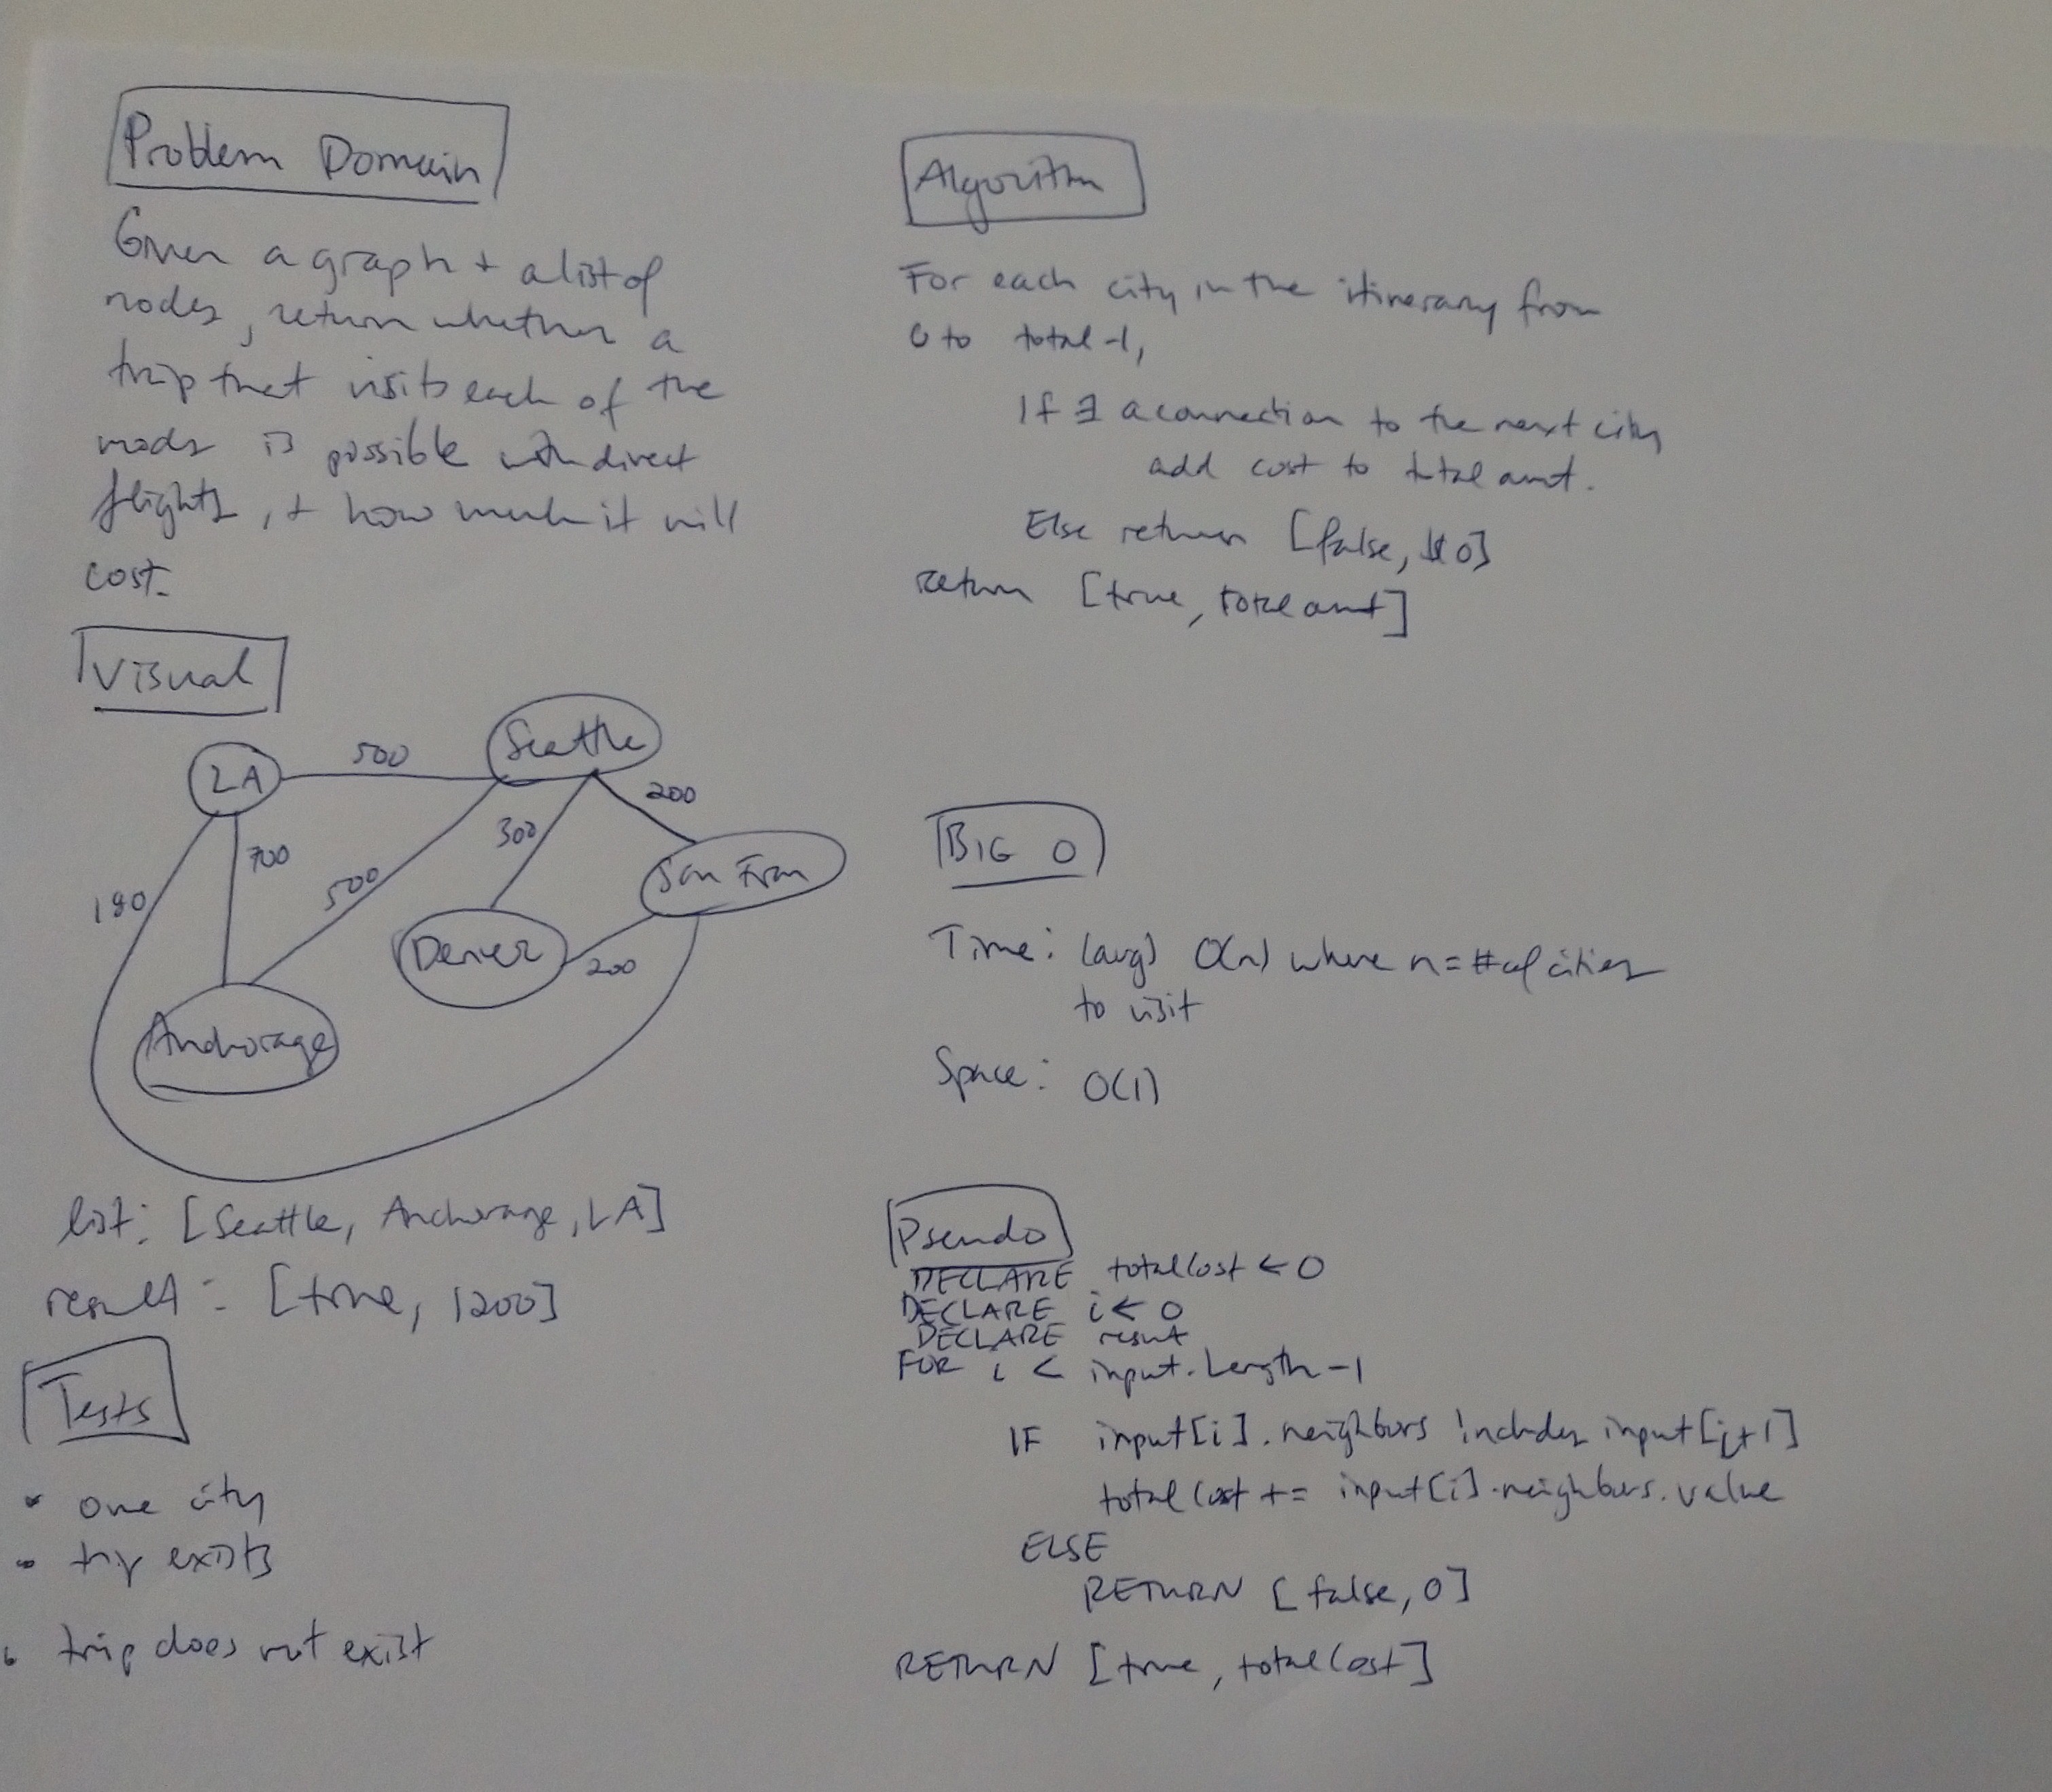 Problem Domain
Given a graph + a list of
nodes, return whether a
trip that visits each of the
nodes is possible with direct
flights, + how much it will
cost.
Visual
LA
500
Seattle
200
300
700
500
San Fran
180
Denver
200
Anchorage
list: [Seattle, Anchorage, LA]
result: [true, 1200]
Tests
• one city
• trip exists
• trip does not exist
Algorithm
For each city in the itinerary from
0 to total-1,
If ∃ a connection to the next city
add cost to total amt.
Else return [false, $0]
return [true, total amt]
BIG O
Time: (avg) O(n) where n = # of cities
to visit
Space: O(1)
Pseudo
DECLARE totalCost ← 0
DECLARE i ← 0
DECLARE result
FOR i < input.Length-1
IF input[i].neighbors includes input[i+1]
totalCost += input[i].neighbors.value
ELSE
RETURN [false, 0]
RETURN [true, totalCost]